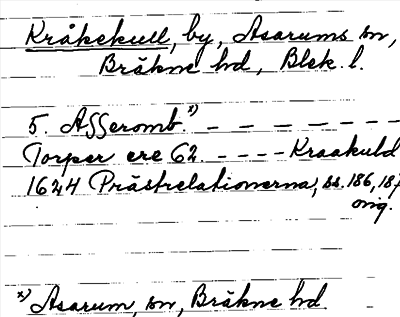 Kråkekull, by, Asarums sn,
Bräkne hd, Blek. l.
5. Asseromb. x) - - - - - -
Torper ere 62. - - - - Kraakuld
1624 Prästrelationerna, ss. 186, 187
orig.
x) Asarum, sn, Bräkne hd